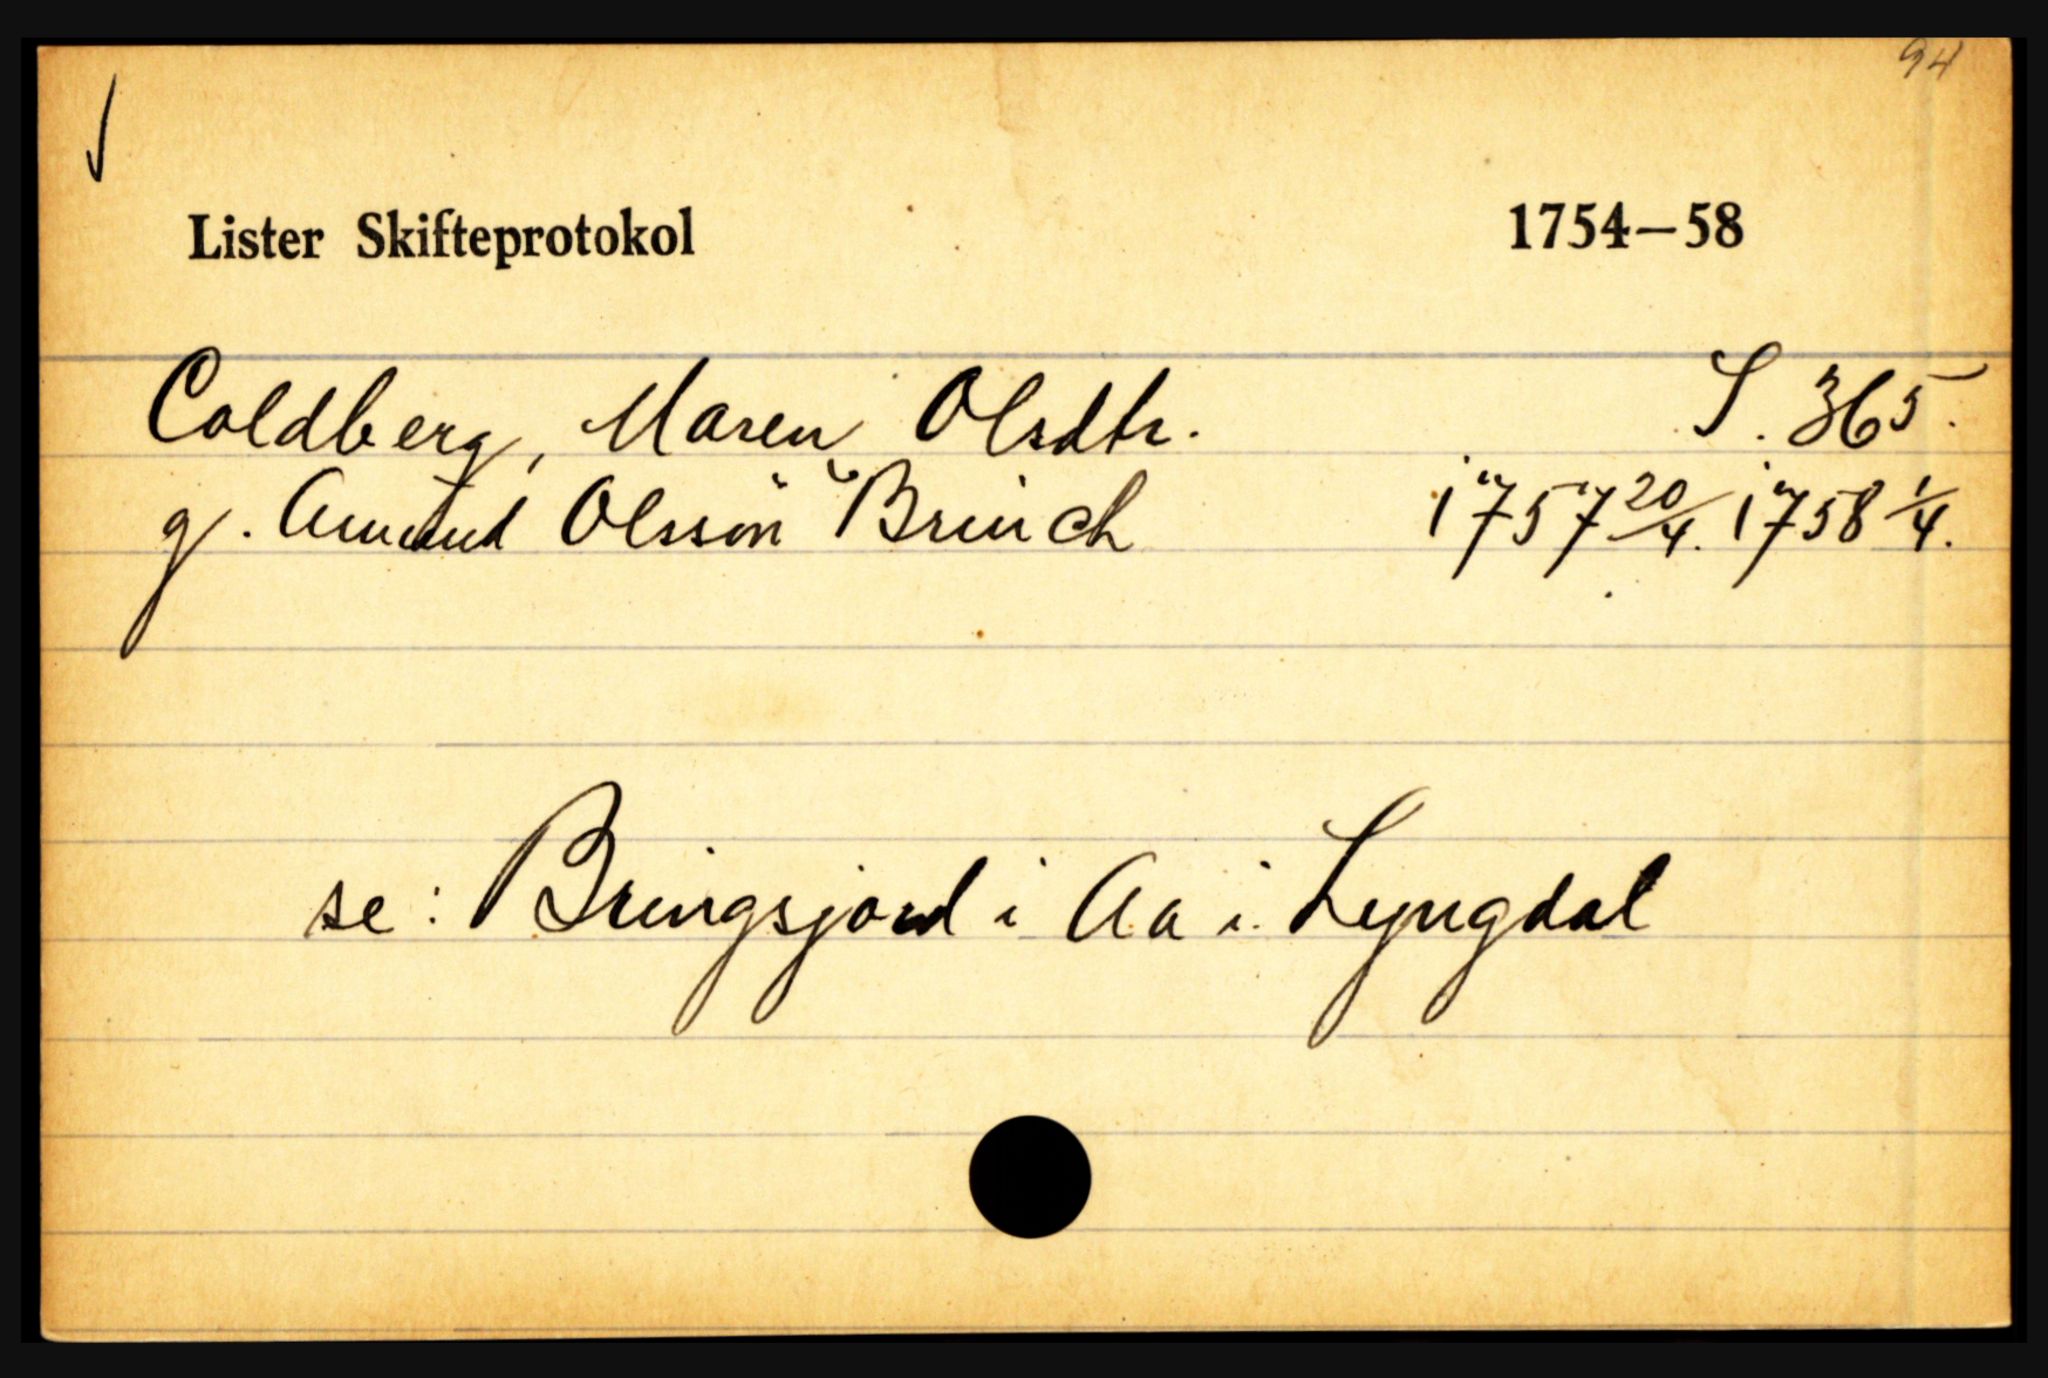 94
Lister Skifteprotokol 1754—58
Coldberg, Maren Olsdtr. S. 365.
g. Amund Olssön Brinch 1757 20/4. 1758 1/4.
se: Bringsjord i Aa i Lyngdal